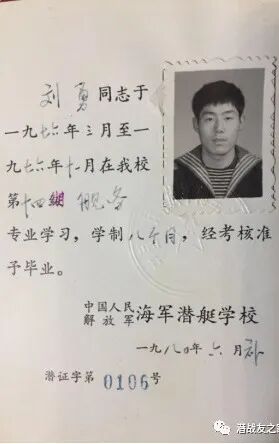 刘勇同志于
一九七六年三月至一
九七六年十一月在我校
第十四期舰务
专业学习，学制八个月，经考核准
予毕业。
中国人民
解放军海军潜艇学校
一九八〇年六月补
潜证字第0106号
潜战友之